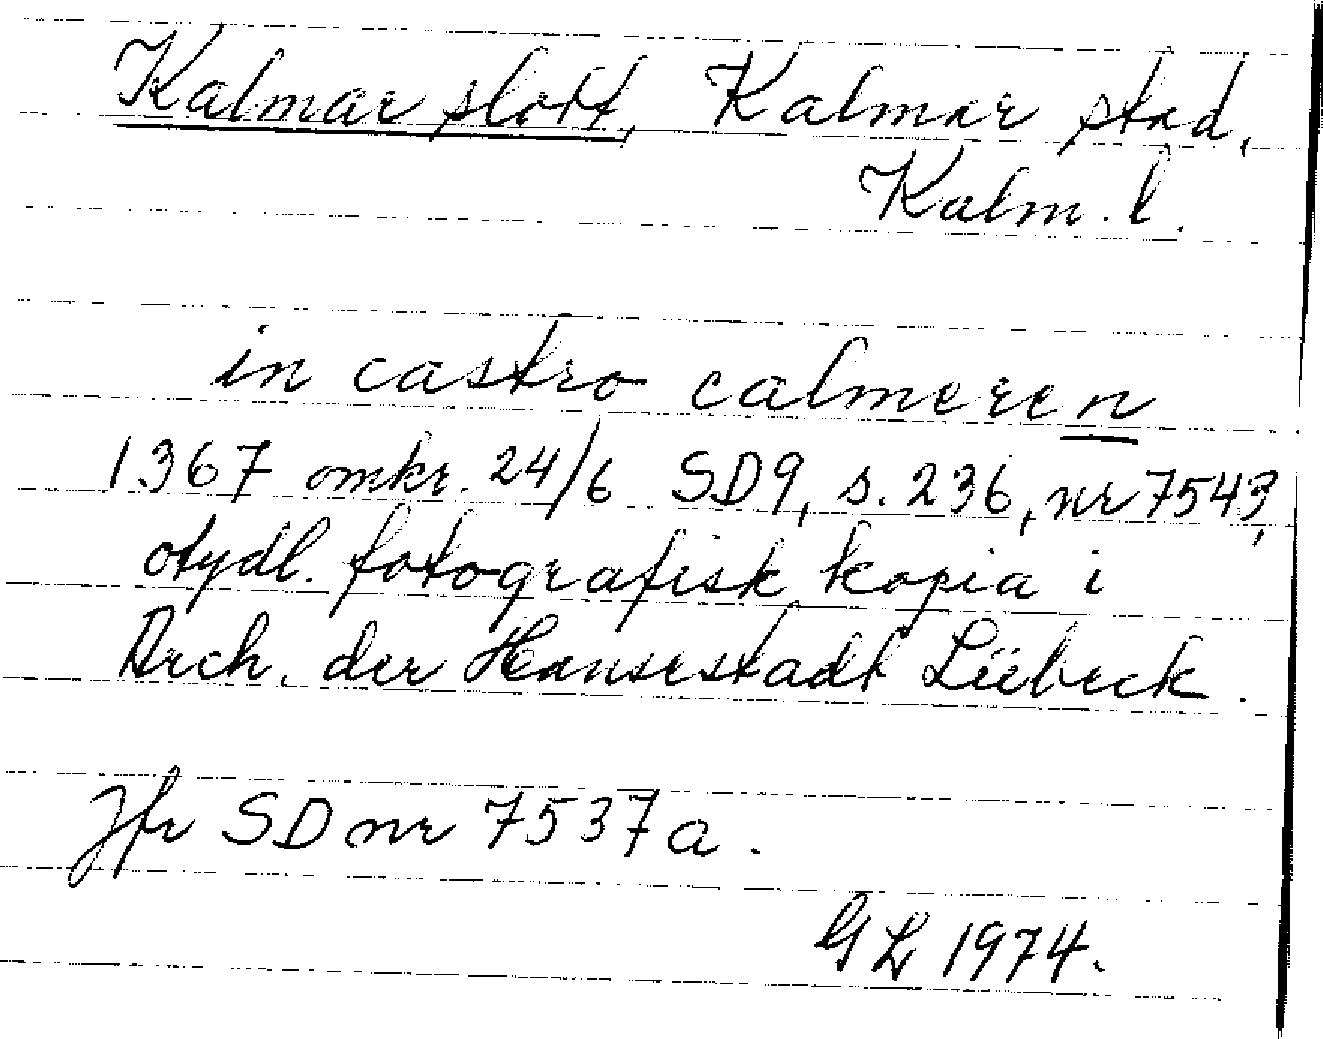 Kalmar slott, Kalmar stad,
Kalm. l.
in castro calmeren
1367 omkr. 24/6 SD9, s. 236, nr 7543,
otydl. fotografisk kopia i
Arch. der Hansestadt Lübeck.
Jfr SD nr 7537a.
GL 1974.